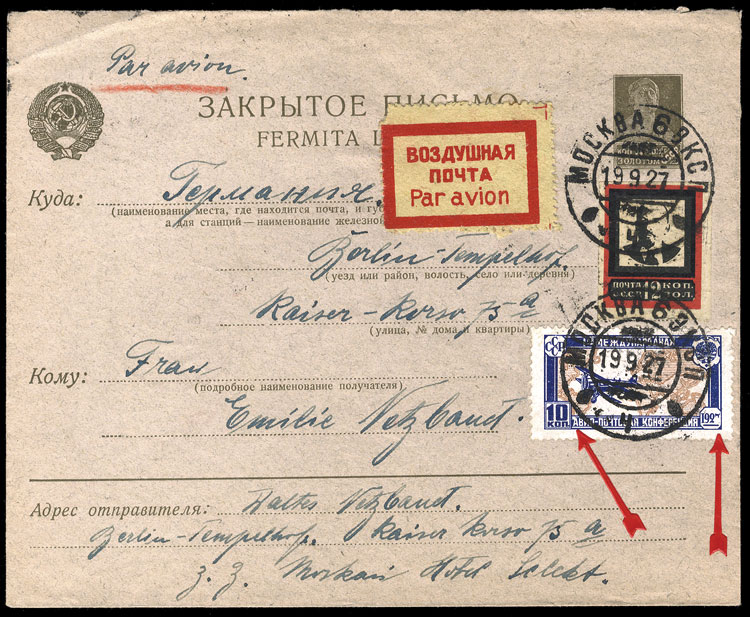 Par avion.
ЗАКРЫТОЕ ПИСЬМО
FERMITA L
ВОЗДУШНАЯ
ПОЧТА
Par avion
ЗОЛОТОМ
МОСКВА 6 ЭКСП
19.9.27
Куда: Германия.
(наименование места, где находится почта, и гу
а для станций—наименование железной
Berlin-Tempelhof.
(уезд или район, волость, село или деревня)
Kaiser-Korso 75 a
(улица, № дома и квартиры)
ПОЧТА 12 КОП.
СССР ЗОЛ.
МОСКВА 6 ЭКСП
19.9.27
МЕЖДУНАРОДНАЯ
10 КОП
АВИА-ПОЧТОВАЯ КОНФЕРЕНЦИЯ 1927
Кому: Frau
(подробное наименование получателя)
Emilie
Адрес отправителя: Walter
Berlin-Tempelhof. Kaiser Korso 75 a
z. Z. Moskau Hotel Selekt.